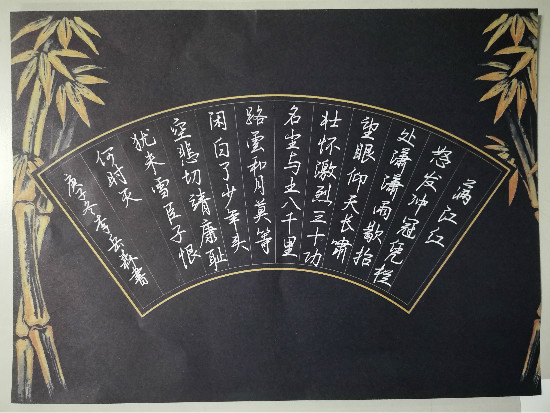 满江红
怒发冲冠凭栏
处潇潇雨歇抬
望眼仰天长啸
壮怀激烈三十功
名尘与土八千里
路雲和月莫等
闲白了少年头
空悲切靖康耻
犹未雪臣子恨
何时灭
庚子冬 书